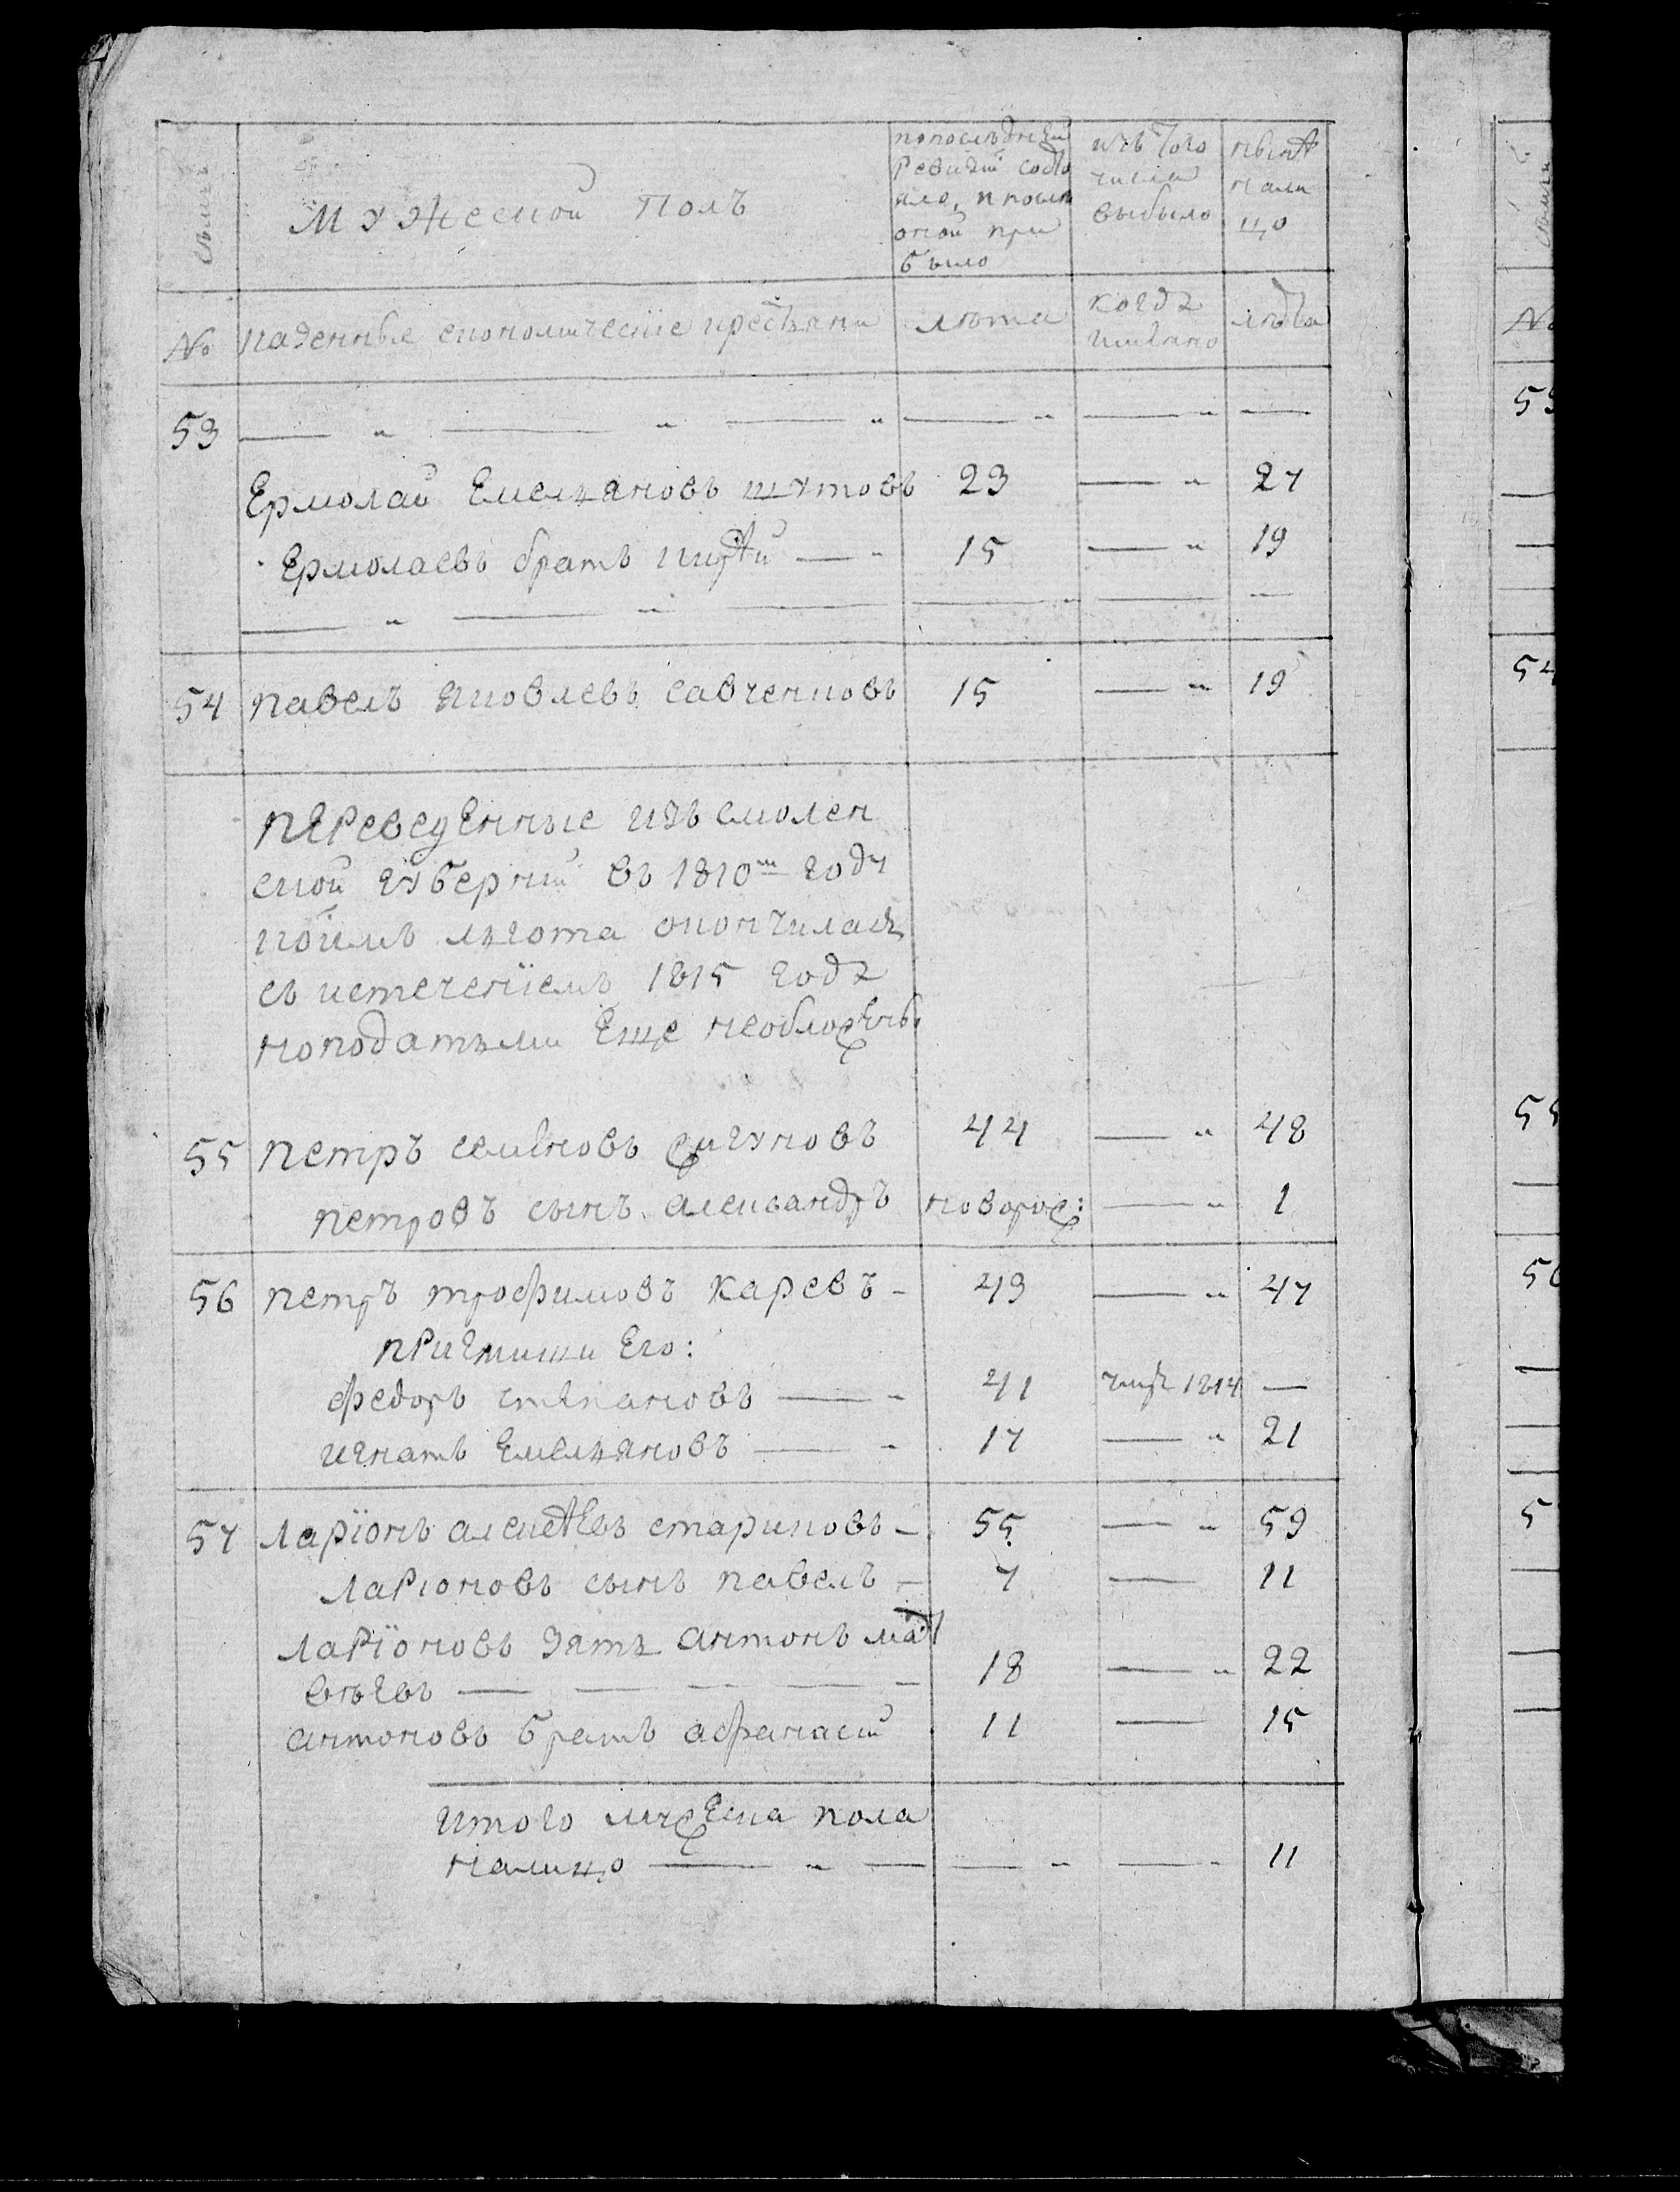 Мужескои Полъ
попоследней ревизии состояло, и после оной прибыло
изъ того числа выбыло
ныне налицо
семьи
№ казенные економические крестьяне лета когда именно лета
53 — " — " — " — " — " —
Ермолай Емельяновъ шутовъ 23 — " 27
Ермолаевъ братъ — " 15 — " 19
— " — " — — " — —
54 павелъ яковлевъ савченковъ 15 — " 19
переведенные изъ смолен
ской губернии въ 1810м году
коимъ льгота окончилась
съ истечениемъ 1815 года
ноподатьми Еще необложены
55 петръ семеновъ жигуновъ 44 — " 48
петровъ сынъ александръ новорож: — " 1
56 петръ трофимовъ каревъ - 43 — " 47
причтиши Его:
федоръ степановъ — " 41 1814 —
игнатъ Емельяновъ — " 17 — " 21
57 Ларïонъ алексеевъ стариковъ - 55 — " 59
Ларионовъ сынъ павелъ - 7 — 11
Ларïоновъ зять антонъ мат
веевъ — — — — - 18 — " 22
антоновъ братъ афанасий 11 — 15
Итого мужеска пола
налицо — " — — " — " 11
№
53
54
55
56
5